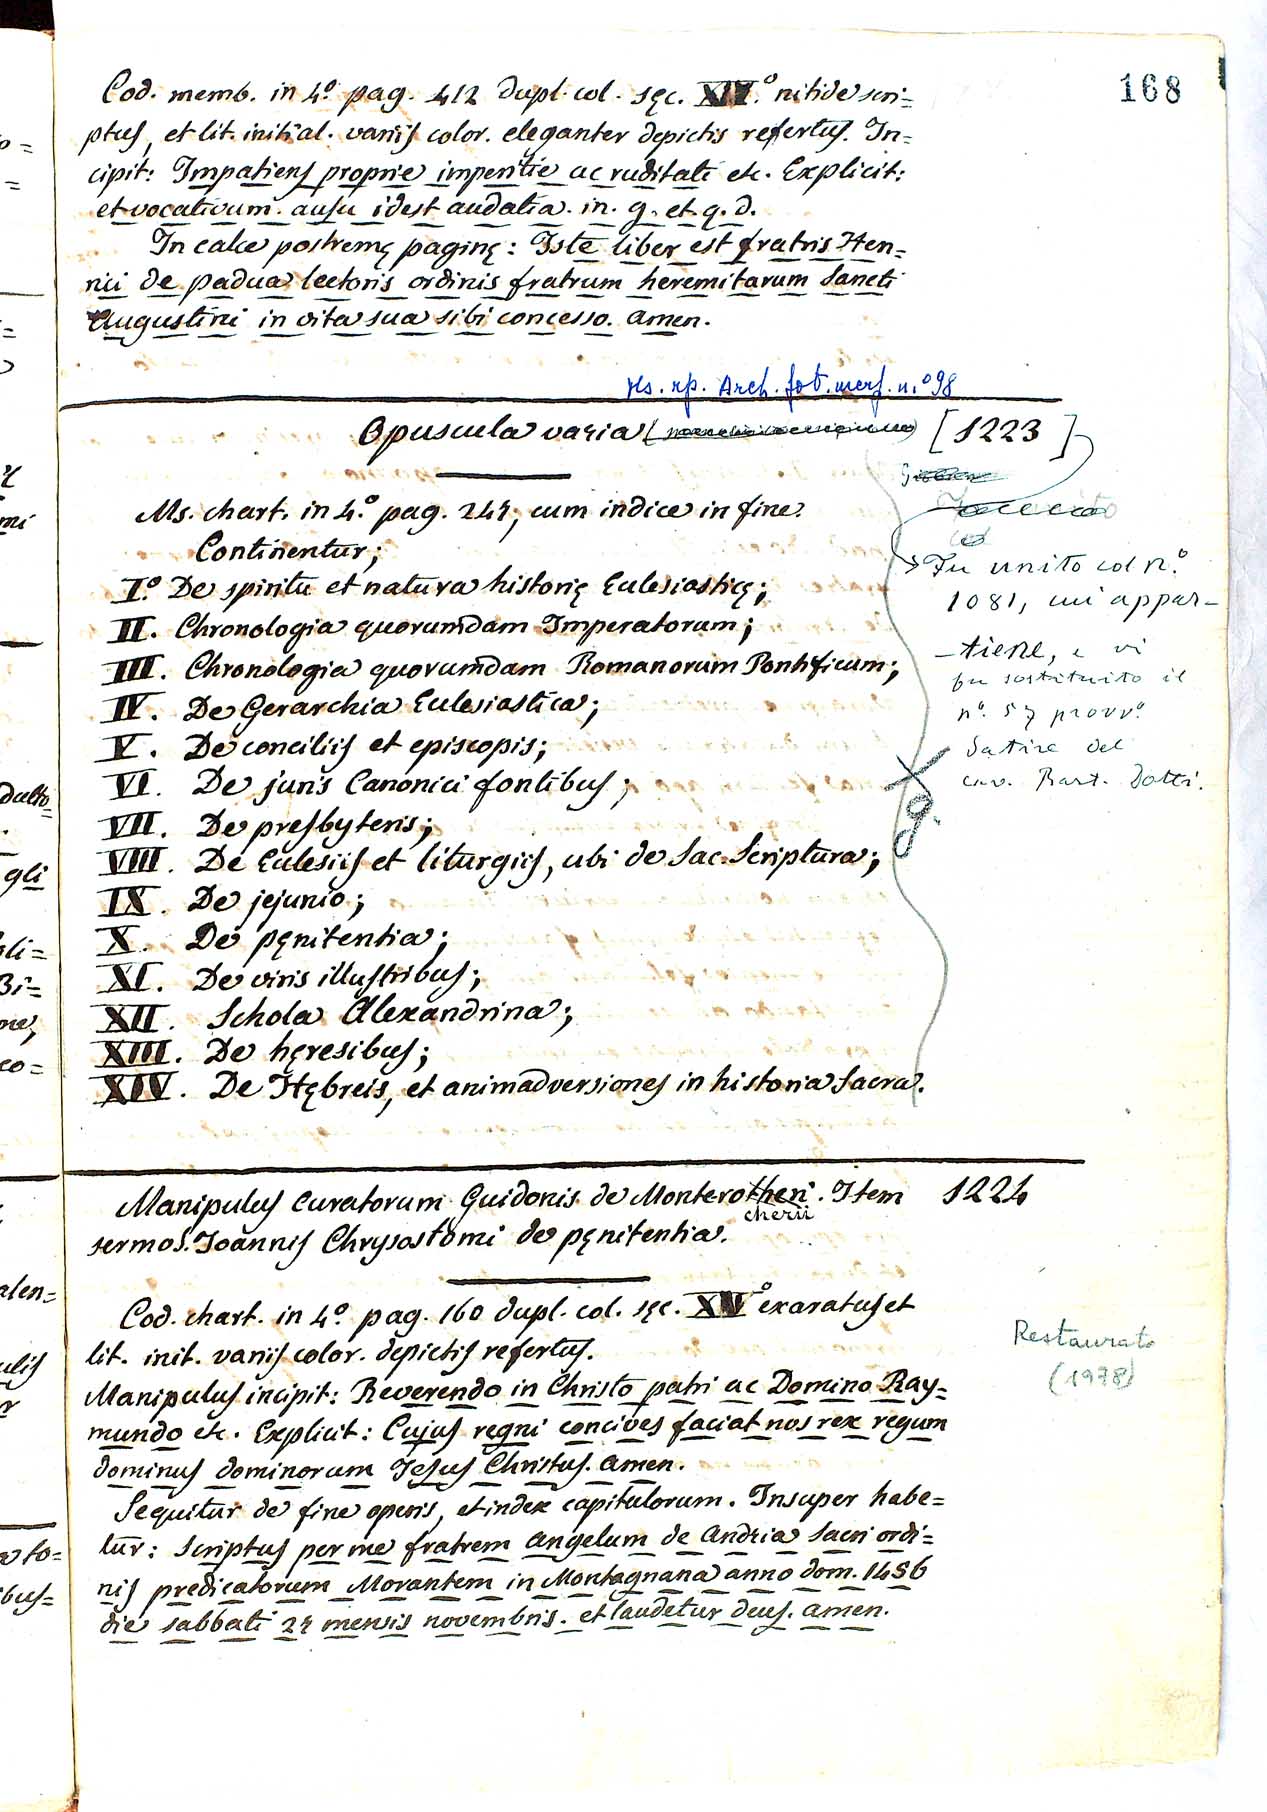 168
Cod. memb. in 4.º pag. 412 dupl. col. sęc. XIV.º nitide scri=
ptus, et lit. initial. variis color. eleganter depictis refertus. In=
cipit: Impatiens proprie imperitie ac ruditati etc. Explicit:
et vocativum. ausu idest audatia. in. g. et. q. d.
In calce postremę paginę: Iste liber est fratris Hen=
rici de padua lectoris ordinis fratrum heremitarum Sancti
Augustini in vita sua sibi concesso. amen.
Ms. rp. Arch. fot. merf. n.º 98
Opuscula varia [1223]
Ms. chart. in 4.º pag. 247; cum indice in fine.
Continentur;
I.º De spiritu et natura historię Eclesiasticę;
II. Chronologia quorumdam Imperatorum;
III. Chronologia quorumdam Romanorum Pontificum;
IV. De Gerarchia Eclesiastica;
V. De conciliis et episcopis;
VI. De juris Canonici fontibus;
VII. De presbyteris;
VIII. De Eclesiis et liturgiis, ubi de Sac. Scriptura;
IX. De jejunio;
X. De pęnitentia;
XI. De viris illustribus;
XII. Schola Alexandrina;
XIII. De hęresibus;
XIV. De Hębreis, et animadversiones in historia Sacra.
Fu unito col n.º
1081, cui appar-
-tiene, e vi
fu sostituito il
nº. 57 provv.º
Satire del
cav. Bart. Dotti.
g.
Manipulus curatorum Guidonis de Monterotheri. Item 1224
cherii
sermo S. Joannis Chrysostomi de pęnitentia.
Cod. chart. in 4.º pag. 160 dupl. col. sęc. XVº exaratus et
lit. init. variis color. depictis refertus.
Manipulus incipit: Reverendo in Christo patri ac Domino Ray=
mundo etc. Explicit: Cujus regni concives faciat nos rex regum
dominus dominorum Jesus Christus. amen.
Sequitur de fine operis, et index capitulorum. Insuper habe=
tur: Scriptus per me fratrem Angelum de Andria Sacri ordi=
nis predicatorum Morantem in Montagnana anno dom. 1456
die sabbati 27 mensis novembris. et laudetur deus. amen.
Restaurato
(1978)